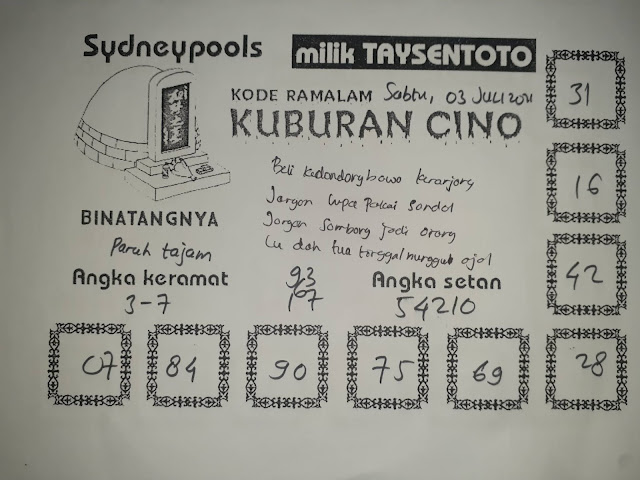 Sydneypools
milik TAYSENTOTO
KODE RAMALAM Sabtu, 03 Juli 2021
KUBURAN CINO
Beli kedondong bawa keranjang
Jangan lupa pakai sandal
Jangan sombong jadi orang
Lu dah tua tinggal nunggu ajal
BINATANGNYA
Paruh tajam
Angka keramat
3-7
93
167
Angka setan
54210
31
16
42
07
84
90
75
69
28